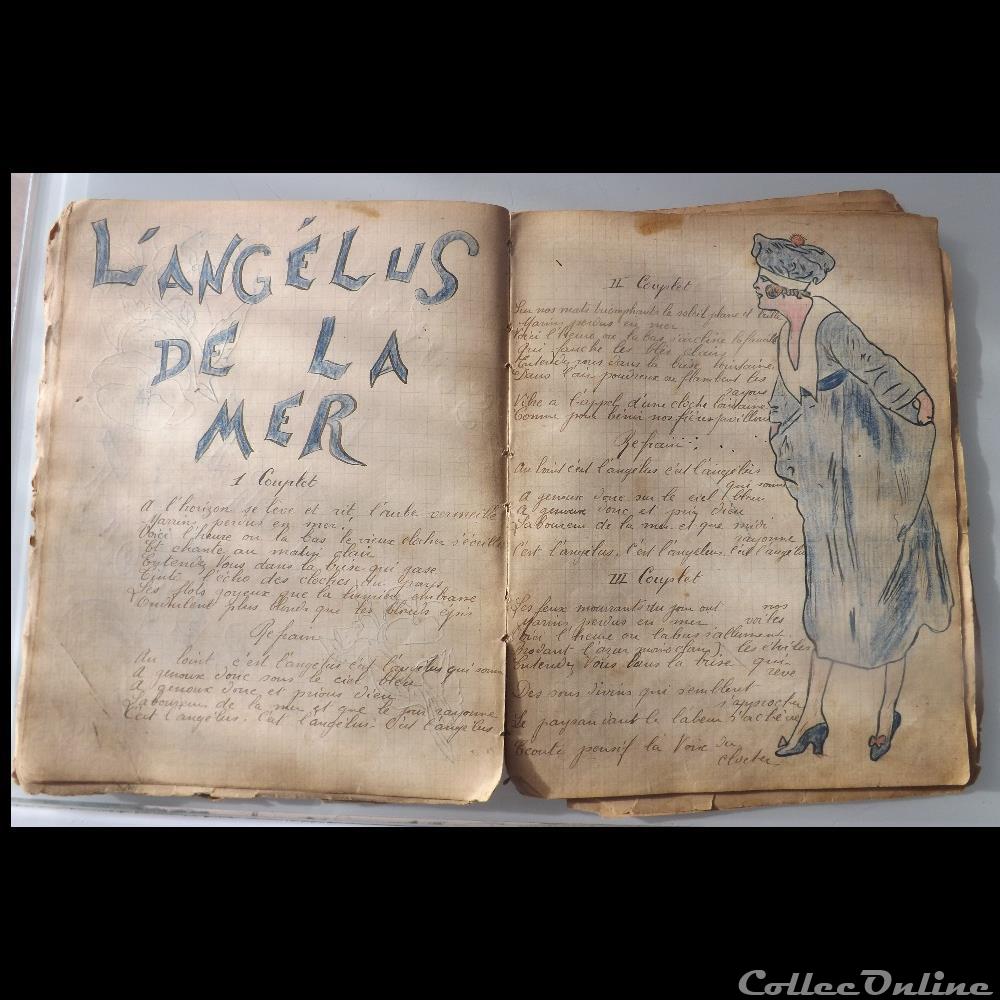 L'ANGÉLUS
DE LA
MER
1 Couplet
A l'horizon se lève et rit l'aube vermeille
Marins perdus en mer
Voici l'heure ou la bas le vieux clocher s'éveille
Et chante au matin clair
Entendez Vous dans la brise qui gase
Tinté l'écho des cloches du pays
Les flots joyeux que la lumière embrasse
Ondulent plus blonds que les blonds épis
Refrain
Au loint c'est l'angelus c'est l'angelus qui sonne
A genoux donc sous le ciel bleu
A genoux donc et prions dieu
Laboureur de la mer et que le jour rayonne
C'est l'angelus. C'est l'angelus. C'est l'angelus
II Couplet
Sur nos mats triomphants le soleil plane et
Marins perdus en mer
Voici l'heure ou la bas s'incline
Qui fauche les blés clairs
Entendez vous dans la brise lointaine
Dans l'air poudreux ou flambent les
rayons
Vibre a l'appel d'une cloche lointaine
Comme pour bénir nos fières pavillons
Refrain
Au loint c'est l'angelus c'est l'angelus
qui sonne
A genoux donc sur le ciel bleu
A genoux donc et prie dieu
Laboureur de la mer et que midi
rayonne
C'est l'angelus. C'est l'angelus. C'est l'angelus
III Couplet
Les feux mourants du jour ont nos
Marins perdus en mer voiles
Voici l'heure ou labas s'allument
les étoiles
Entendez Vous dans la brise qui
reve
Des sons divins qui semblent
s'approcher
Le paysan dont le labeur s'achève
Ecoute pensif la Voix du
clocher
ColleeOnline